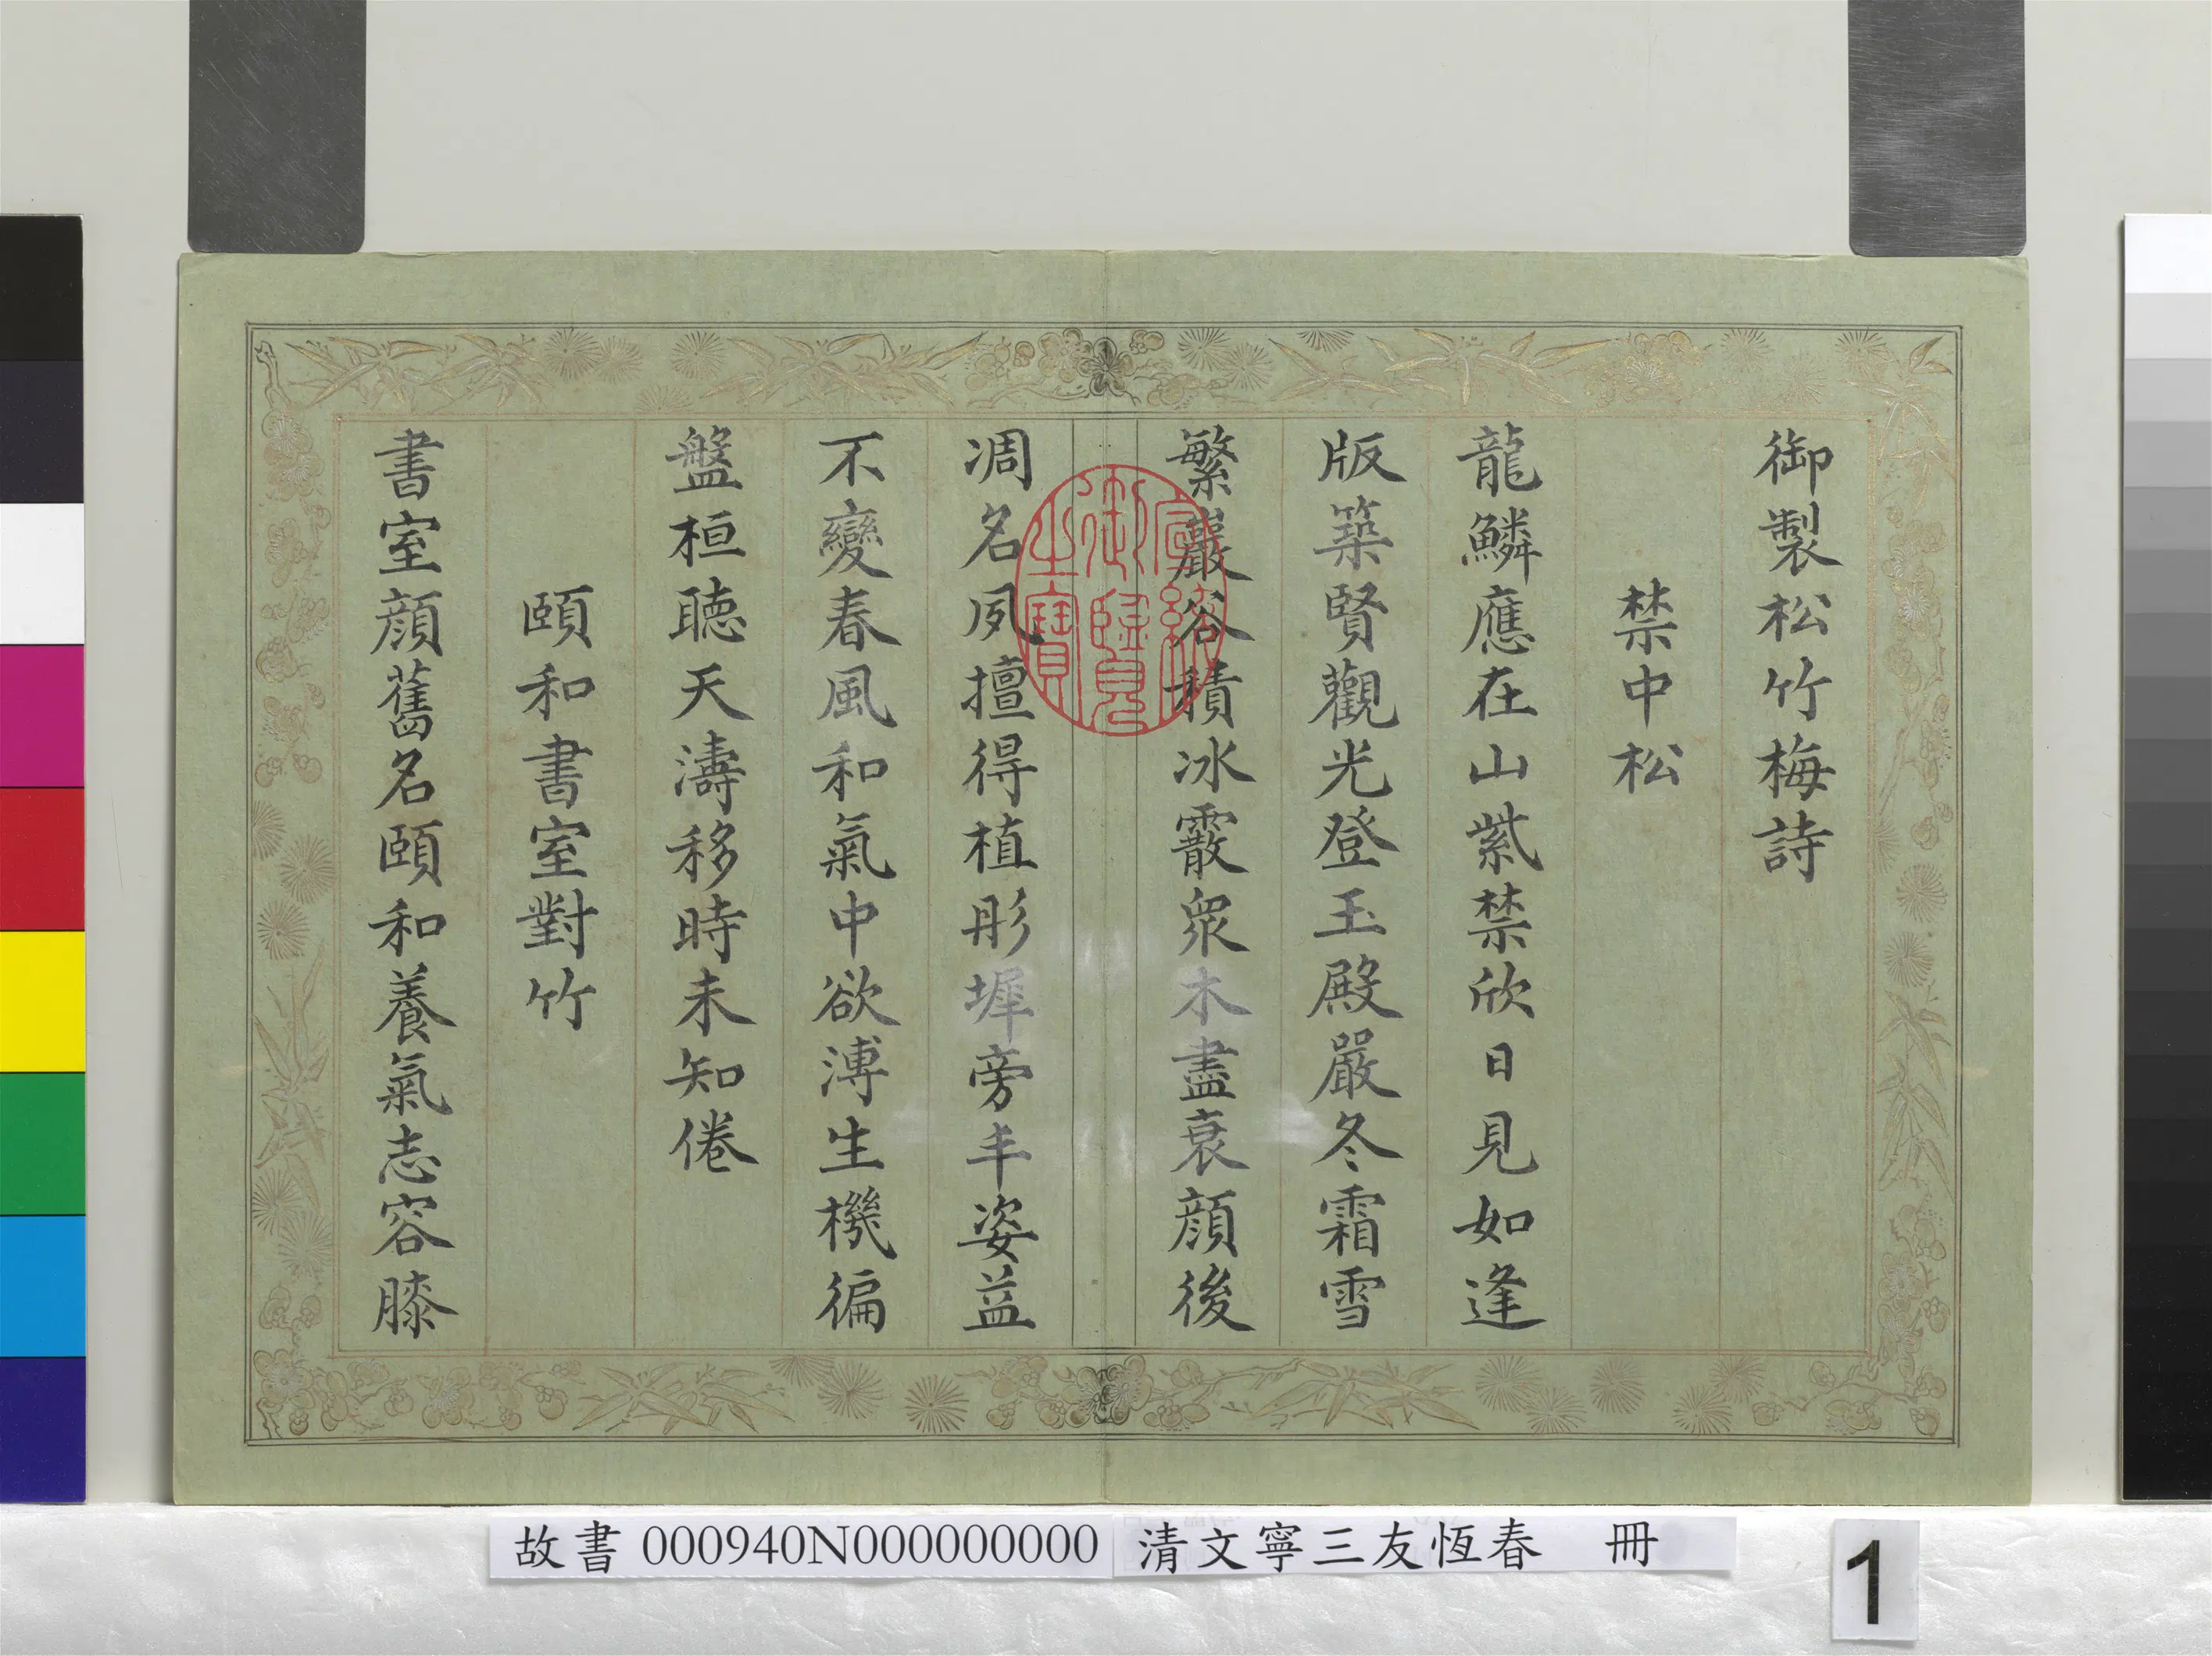 御製松竹梅詩
禁中松
龍鱗應在山紫禁欣日見如逢
版築賢觀光登玉殿嚴冬霜雪
繁巖谷積冰霰衆木盡衰顔後
凋名夙擅得植彤墀旁丰姿益
不變春風和氣中欲溥生機徧
盤桓聴天濤移時未知倦
頤和書室對竹
書室顔舊名頤和養氣志容膝
宣統御覽之寶
故書 000940N000000000 清文寧三友恆春 冊
1